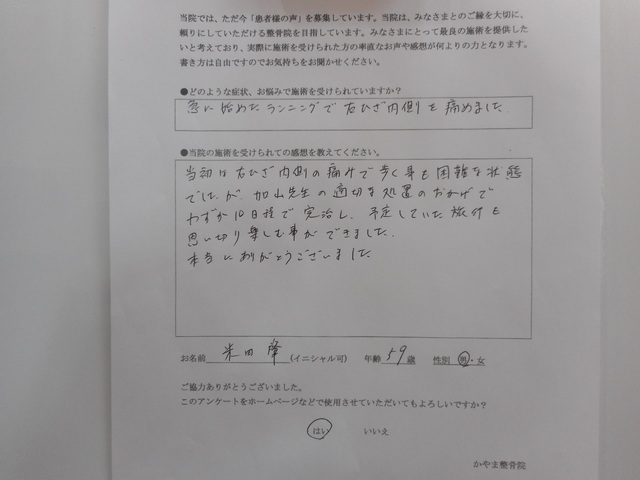 当院では、ただ今「患者様の声」を募集しています。当院は、みなさまとのご縁を大切に、
頼りにしていただける整骨院を目指しています。みなさまにとって最良の施術を提供した
いと考えており、実際に施術を受けられた方の率直なお声や感想が何よりの力となります。
書き方は自由ですのでお気持ちをお聞かせください。
●どのような症状、お悩みで施術を受けられていますか？
急に始めたランニングで右ひざ内側を痛めました。
●当院の施術を受けられての感想を教えてください。
当初は右ひざ内側の痛みで歩く事も困難な状態
でしたが、加山先生の適切な処置のおかげで
わずか10日程で完治し、予定していた旅行も
思い切り楽しむ事ができました。
本当にありがとうございました。
お名前 米田 隆 (イニシャル可) 年齢 59 歳 性別 男・女
ご協力ありがとうございました。
このアンケートをホームページなどで使用させていただいてもよろしいですか？
はい いいえ
かやま整骨院